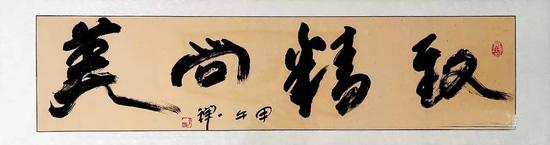 致精尚美
甲午·禪